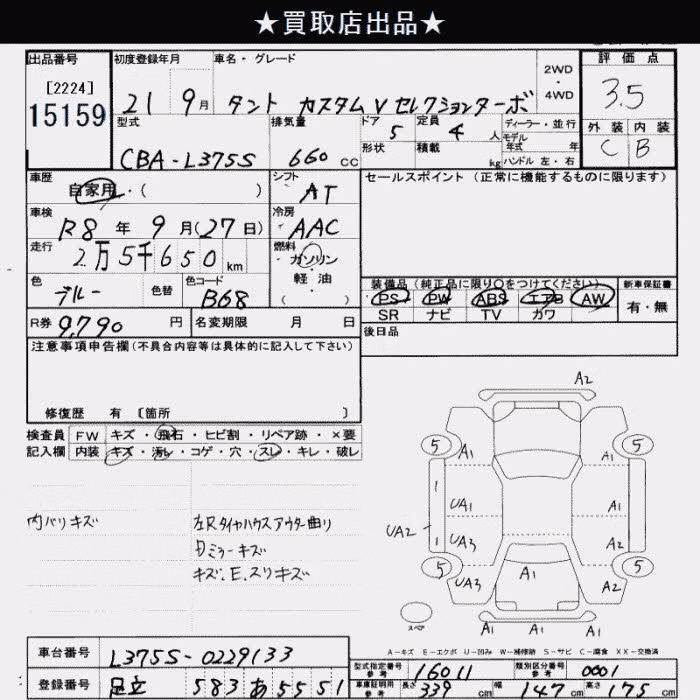 ★買取店出品★
出品番号
[2224]
15159
初度登録年月
21 9月
車名・グレード
タント カスタムVセレクションターボ
2WD
・
4WD
評価点
3.5
外装 内装
C B
型式
CBA-L375S
排気量
660 CC
ドア
5
形状
定員
4 人
積載
kg
ディーラー・並行
モデル
年式 年
ハンドル 左・右
車歴
自家用・( )
シフト
AT
車検
R8 年 9月(27日)
冷房
AAC
走行
2万5千650 km
燃料
ガソリン
軽・油
( )
色
ブルー
色替
色コード
B68
R券 9,790 円
名変期限 月 日
セールスポイント (正常に機能するものに限ります)
装備品 (純正品に限り○をつけてください)
PS PW ABS エアB AW
SR ナビ TV カワ
新車保証書
有・無
後日品
注意事項申告欄(不具合内容等は具体的に記入して下さい)
修復歴 有 〔箇所 〕
検査員
記入欄
FW キズ・飛石・ヒビ割・リペア跡・×要
内装 キズ・汚レ・コゲ・穴・スレ・キレ・破レ
内バリキズ
左Rタイヤハウスアウター曲り
Dミラーキズ
キズ.E.スリキズ
A2
5 5
A1 A1
UA1 A1
UA2
UA3 A2
5 5
UA3 A1 A2
A1 A1 A1
スペア
A-キズ E-エクボ U-凹み W-補修跡 S-サビ C-腐食 XX-交換済
車台番号 L375S-0229133
登録番号 足立 583 あ 5551
型式指定番号
参考
16011
類別区分番号
参考
0001
車庫証明用
参考
長さ 339 cm 幅 147 cm 高さ 175 cm